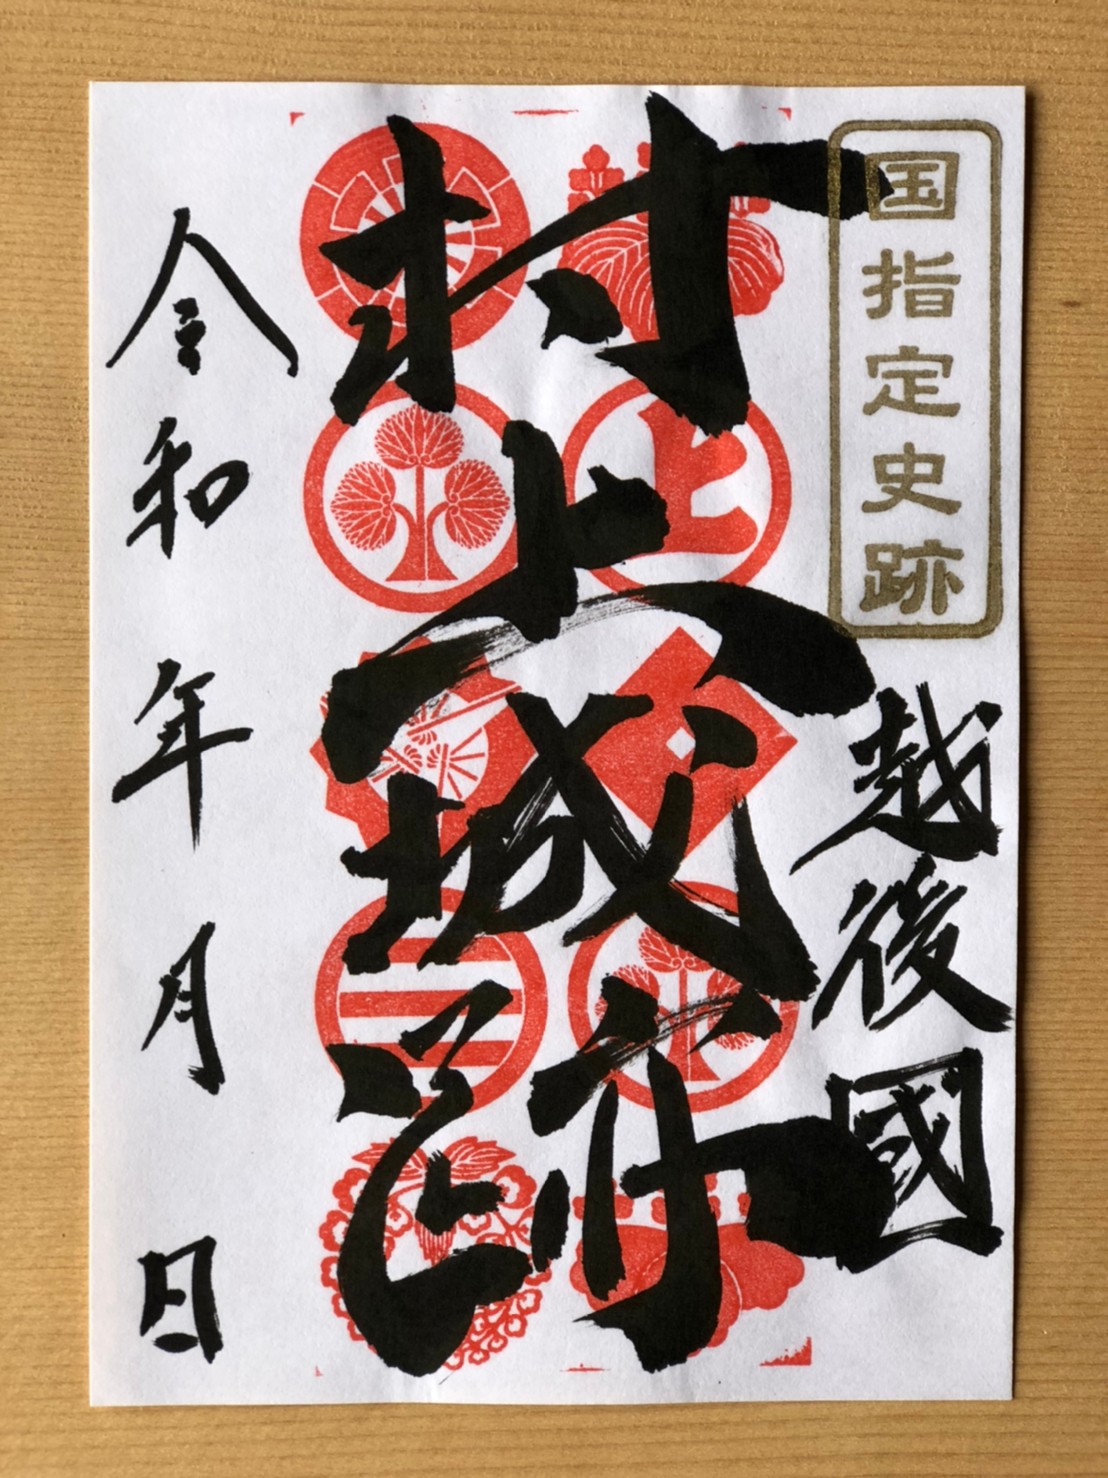 国指定史跡
越後國
村上城跡
上
令和 年 月 日